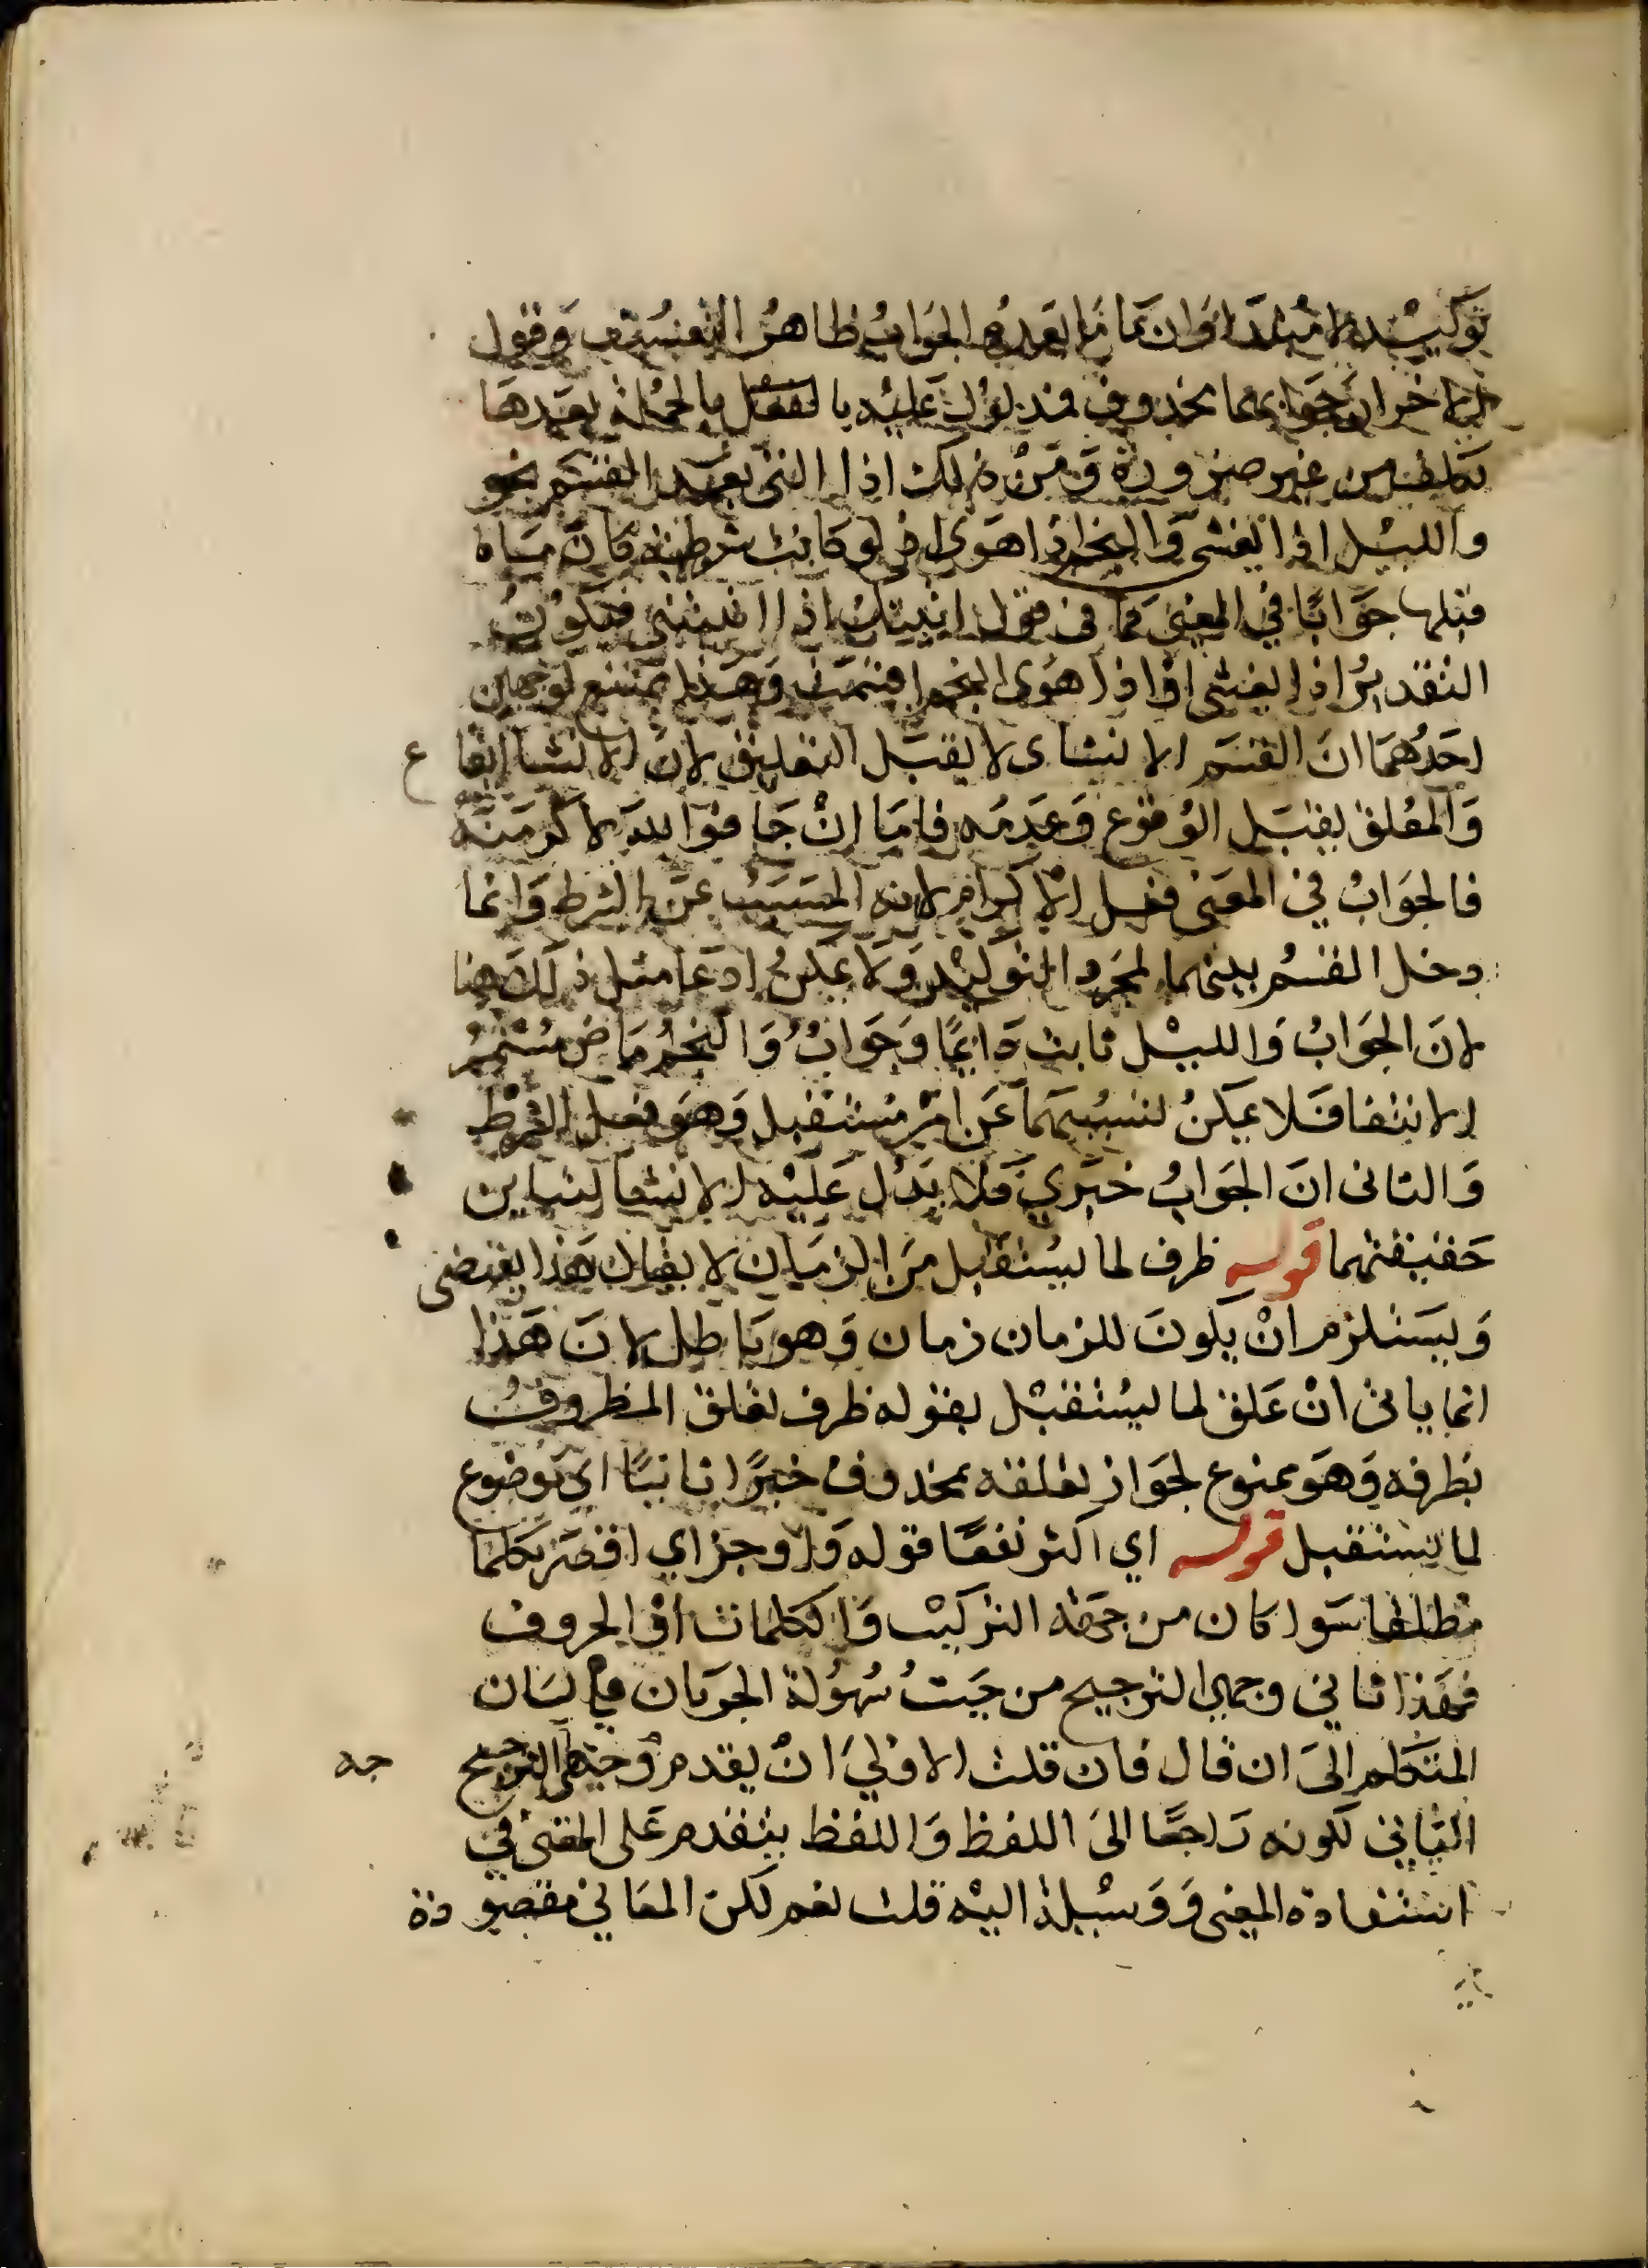 توكيد لا مبتدا وان ما بعده الجواب ظاهر التعسف وقول
اخر ان جوابهما محذوف مدلول عليه بالفعل بالجملة بعدها
تكلف من غير ضرورة ومن ذلك اذا التى بعد القسم نحو
والليل اذا يغشى والنجم اذا هوى اذ لو كانت شرطية كان ما
قبلها جوابا في المعنى كما فى قولك اتيتك اذا اتيتنى فيكون
التقدير اذا يغشى او اذا هوى النجم اقسمت وهذا يمتنع لوجهين
احدهما ان القسم الانشاى لا يقبل التعليق لان الانشا ايقاع
والمعلق يقبل الوقوع وعدمه فاما ان جا فوالله لاكرمنه
فالجواب في المعنى فعل الاكرام لانه المسبب عن الشرط وانما
دخل القسم بينهما لمجرد التوكيد ولا يمكن ادعا مثل ذلك هنا
لان الجواب والليل ثابت دايما وجواب والنجم ماض مستمر
الانتفا فلا يمكن تسببهما عن امر مستقبل وهو فعل الشرط
والثانى ان الجواب خبري فلا يدل عليه الانشا لتباين
حقيقتهما قوله ظرف لما يستقبل من الزمان لا يقال هذا يقتضى
ويستلزم ان يكون للزمان زمان وهو باطل لان هذا
انما ياتى ان علق لما يستقبل بقوله ظرف تعلق المظروف
بظرفه وهو ممنوع لجواز تعلقه بمحذوف خبرا ثانيا اي موضوع
لما يستقبل قوله اي اكثر نفعا قوله واوجز اي اقصر بكلما
مطلقا سوا كان من جهة التركيب والكلمات او الحروف
فهذا ثاني وجهي الترجيح من حيث سهولة الجريان في لسان
المتكلم الى ان قال فان قلت الاولي ان يقدم وجه الترجيح
الثاني لكونه راجعا الى اللفظ واللفظ يتقدم على المعنى في
استفادة المعنى ووسيلة اليه قلت نعم لكن المعاني مقصودة
جه